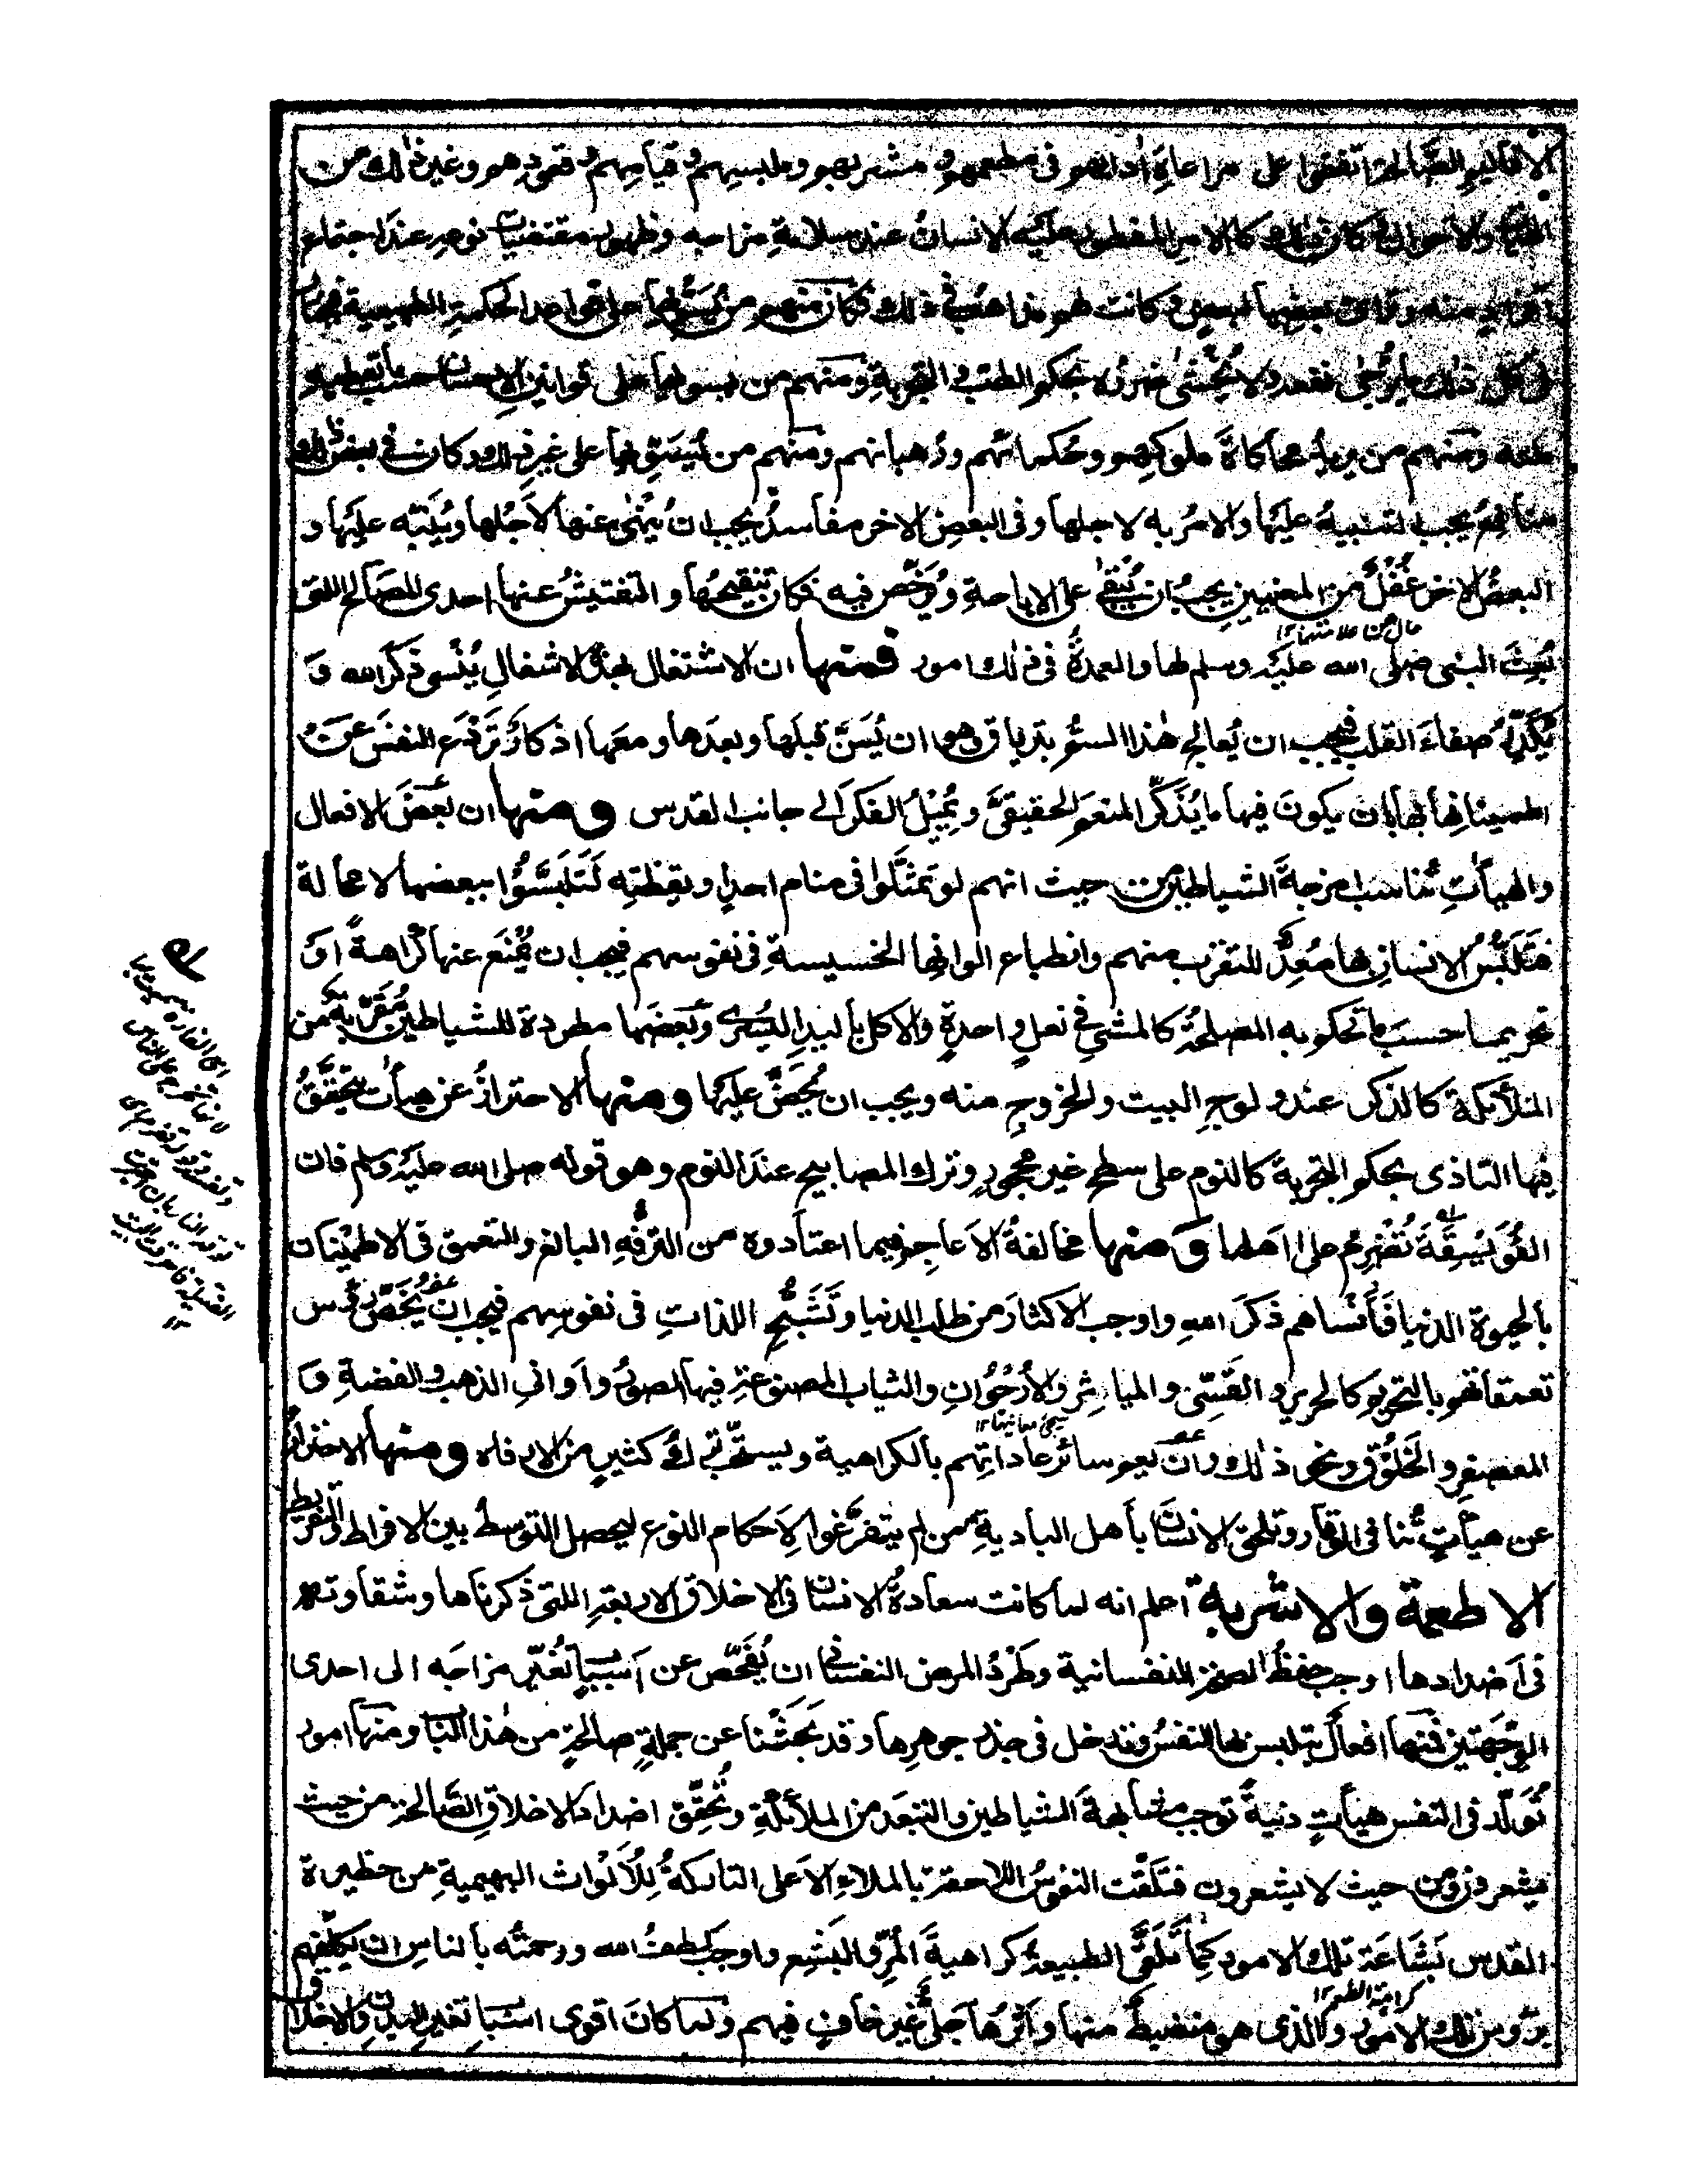 الاقاليم الصالحة اتفقوا على مراعاة آدابهم في مطعمهم ومشربهم وملبسهم وقيامهم وقعودهم وغير ذلك من
الهيآت والاحوال وكان ذلك كالامر المفطور عليه الانسان عند سلامة مزاجه وظهور مقتضيات نوعه عند اجتماع
افراد منه وترائي بعضها لبعض وكانت لهم مذاهب في ذلك فكان منهم من يسويها على قواعد الحكمة الطبيعية فيختار
في كل ذلك ما يرجى نفعه ولا يخشى ضرره بحكم الطب والتجربة ومنهم من يسويها على قوانين الاحسان حسب ما تعطيه
ملته ومنهم من يريد محاكاة ملوكهم وحكمائهم ورهبانهم ومنهم من يسويها على غير ذلك وكان في بعض ذلك
منافع يجب التنبيه عليها والامر به لاجلها وفي البعض الاخر مفاسد يجب ان ينهى عنها لاجلها وينبه عليها و
البعض الاخر غفل من المعنيين يجب ان يبقى على الاباحة ويرخص فيه فكان تنقيحها والتفتيش عنها احدى المصالح اللتي
بعث النبي صلى الله عليه وسلم لها والعمدة في ذلك امور فمنها ان الاشتغال بهذه الاشغال ينسي ذكر الله و
يكدر صفاء القلب فيجب ان يعالج هذا السم بترياق وهو ان يسن قبلها وبعدها ومعها اذكار تردع النفس عن
اطمينانها بها بان يكون فيها ما يذكر المنعم الحقيقي ويميل الفكر الى جانب القدس ومنها ان بعض الافعال
والهيآت تناسب امزجة الشياطين من حيث انهم لو تمثلوا في منام احد او يقظته لتلبسوا ببعضها لا محالة
فتلبس الانسان بها معد للتقرب منهم وانطباع الوانها الخسيسة في نفوسهم فيجب ان يمنع عنها كراهة او
تحريما حسب ما تحكم به المصلحة كالمشي في نعل واحدة والاكل باليد اليسرى وبعضها مطردة للشياطين مقربة من
الملائكة كالذكر عند ولوج البيت والخروج منه ويجب ان يحض عليها ومنها الاحتراز عن هيآت يتحقق
فيها التاذي بحكم التجربة كالنوم على سطح غير محجور وترك المصابيح عند النوم وهو قوله صلى الله عليه وسلم فان
الفويسقة تضرم على اهلها ومنها مخالفة الاعاجم فيما اعتادوه من الترفه البالغ والتعمق في الاطمينان
بالحيوة الدنيا فانساهم ذكر الله واوجب الاكثار من طلب الدنيا وتشبح اللذات في نفوسهم فيجب ان يخص رؤس
تعمقاتهم بالتحريم كالحرير والقسي والمياثر والارجوان والثياب المصنوعة فيها الصور واواني الذهب والفضة و
المعصفر والخلوق ونحو ذلك وان يعم سائر عاداتهم بالكراهية ويستحب ترك كثير من الارفاه ومنها الاحتراز
عن هيآت تنافي الوقار وتلحق الانسان باهل البادية ممن لم يتفرغوا لاحكام النوع ليحصل التوسط بين الافراط والتفريط
الاطعمة والاشربة اعلم انه لما كانت سعادة الانسان في الاخلاق الاربعة اللتي ذكرناها وشقاوته
في اضدادها اوجب حفظ الصحة النفسانية وطرد المرض النفساني ان يفحص عن اسباب تغير مزاجه الى احدى
الوجهتين فمنها افعال تتلبس بها النفس وتدخل في جذر جوهرها وقد بحثنا عن جملة صالحة من هذا الباب ومنها امور
تولد في النفس هيآت دنية توجب مشابهة الشياطين والتبعد من الملائكة وتحقق اضداد الاخلاق الصالحة من حيث
يشعرون ومن حيث لا يشعرون فتلقت النفوس اللاحقة بالملاء الاعلى التاركة للالواث البهيمية من حظيرة
القدس بشاعة تلك الامور كما تلقى الطبيعة كراهية المر والبشع واوجب لطف الله ورحمته بالناس ان يكلفهم
برؤس تلك الامور والذي هو منضبط منها واثرها جلي غير خاف فيهم ولما كان اقوى اسباب تغير البدن والاخلاق